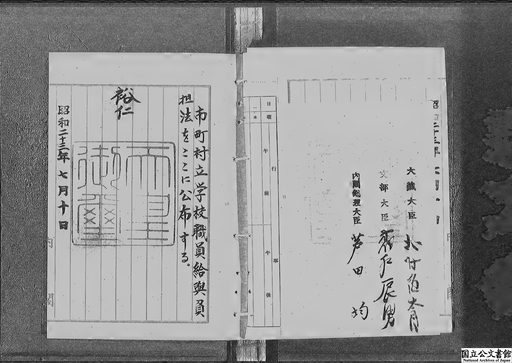 市町村立学校職員給與負
担法をここに公布する。
裕仁
天皇
御璽
昭和二十三年七月十日
大藏大臣 北村徳太郎
文部大臣 森戸辰男
内閣総理大臣 芦田均
国立公文書館
National Archives of Japan